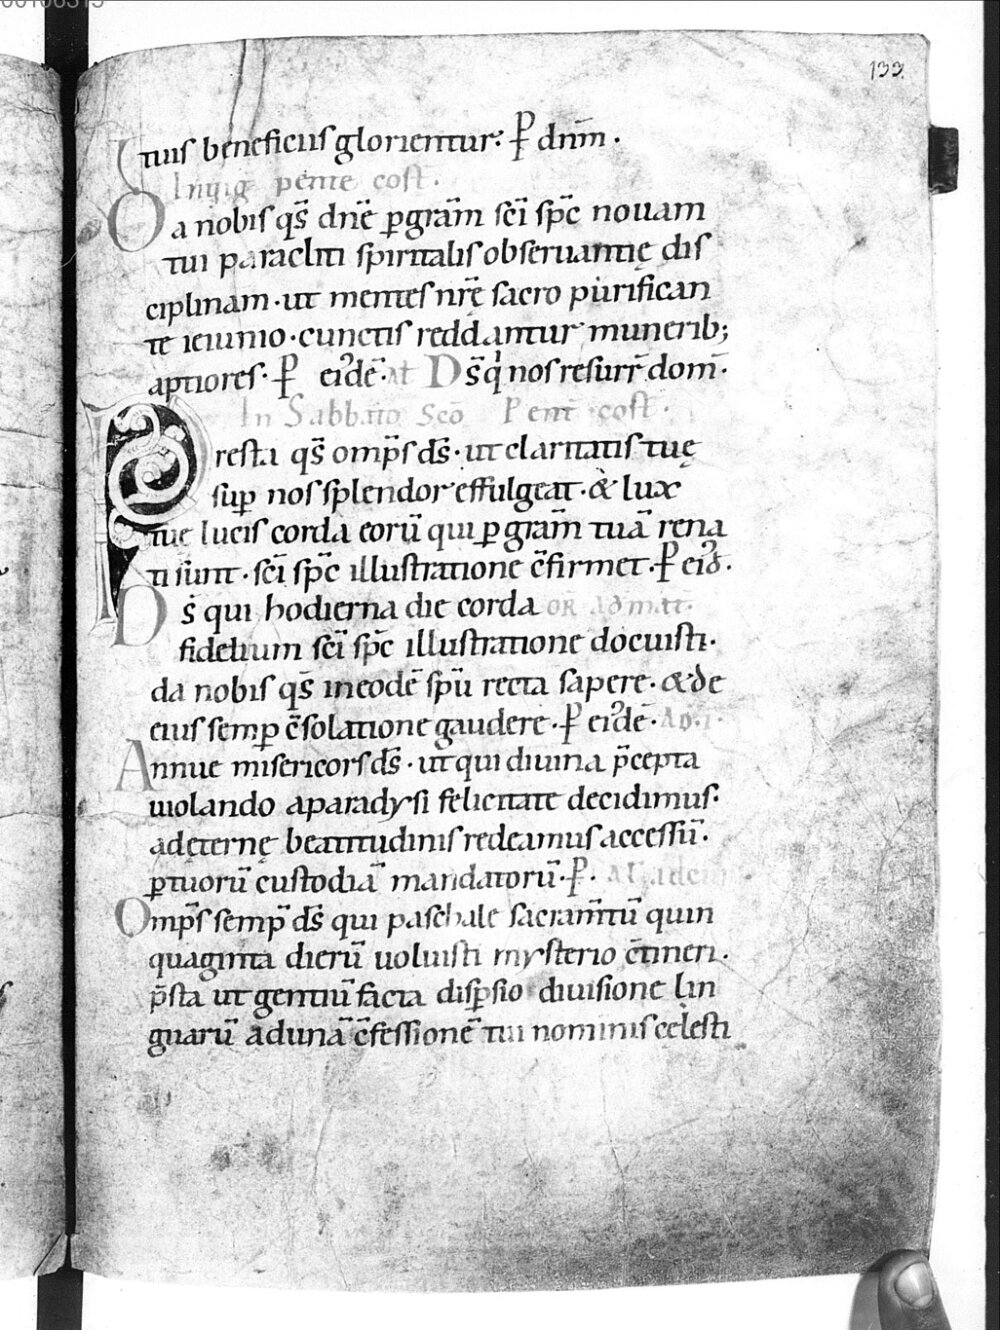 133.
tuis beneficiis glorientur. P̄ dnm̄.
In uig pente cost.
Da nobis qs̄ dnē ꝑ gram̄ scī sp̄c nouam
tui paracliti spiritalis obseruantię dis
ciplinam · ut mentes nrę̄ sacro purifican
te ieiunio · cunctis reddantur munerib;
aptiores. P̄ eidē. Dꝰs̄ q̇ nos resurr̄ dom̄.
In Sabbato Sco Pent cost.
Presta qs̄ omp̄s ds̄ · ut claritatis tuę
suꝑ nos splendor effulgeat · & lux
tuę lucis corda eorū qui ꝑ gram̄ tuā rena
ti sunt · scī sp̄c illustratione c̄firmet. P̄ eiđ.
Ds̄ qui hodierna die corda OR̄ ad mat̄.
fidelium scī sp̄c illustratione docuisti.
da nobis qs̄ in eodē spū recta sapere · & de
eius semꝑ c̄solatione gaudere. P̄ eidē.
Annue misericors ds̄ · ut qui diuina p̄cepta
uiolando a paradysi felicitate decidimus.
ad ęternę beatitudinis redeamus accessū.
ꝑ tuorū custodiā mandatorū. P̄.
Omp̄s semp̄ ds̄ qui paschale sacram̄tū quin
quaginta dierū uoluisti mysterio c̄tineri.
p̄sta ut gentiū facta disꝑsio diuisione lin
guarū ad unā c̄fessionē tui nominis celesti